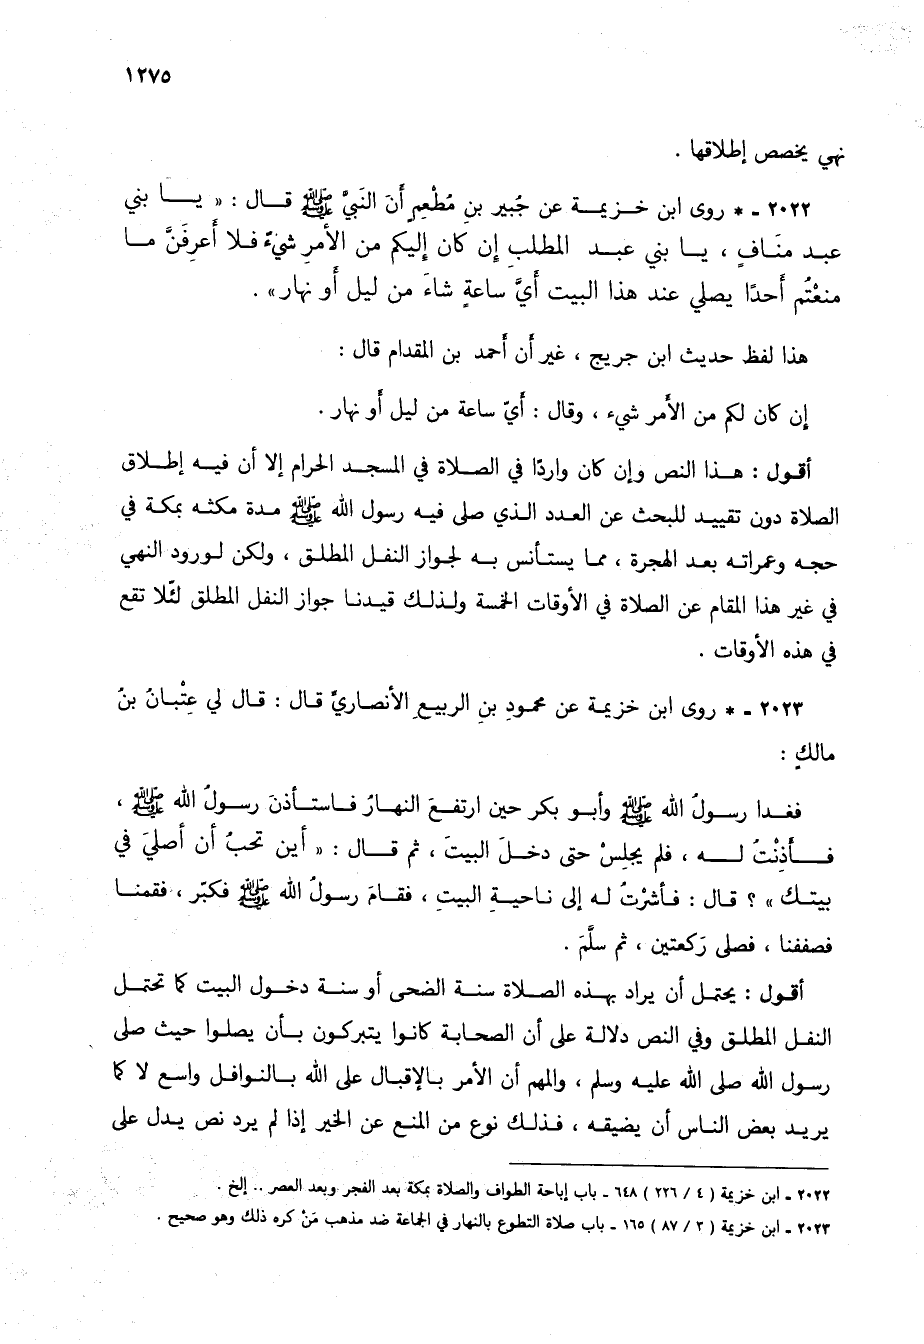 ١٢٧٥
نهي يخصص إطلاقها .
٢٠٢٢ ـ * روى ابن خـزيمـة عن جُبير بنِ مُطْعِمٍ أَنَ النَبيَّ ﷺ قـال : « يـا بني
عبـد منَـافٍ ، يـا بني عبـد المطلبِ إن كان إليكم من الأمرِ شيْءٌ فـلا أَعرِفَنَّ مـا
منعْتُم أحدًا يصلي عند هذا البيت أيَّ ساعةٍ شاءَ من ليل أو نهار» .
هذا لفظ حديث ابن جريج ، غير أن أحمد بن المقدام قال :
إن كان لكم من الأمر شيء ، وقال : أَيّ ساعة من ليل أو نهار .
أقـول : هـذا النص وإن كان واردًا في الصـلاة في المسجـد الحرام إلا أن فيـه إطـلاق
الصلاة دون تقييـد للبحث عن العـدد الـذي صلى فيـه رسول الله ﷺ مـدة مكثـه بمكـة في
حجـه وعمراتـه بعـد الهجرة ، ممـا يستـأنس بـه لجواز النفـل المطلـق ، ولكن لـورود النهي
في غير هذا المقام عن الصلاة في الأوقات الخمسة ولـذلـك قيـدنـا جواز النفل المطلق لئلا تقع
في هذه الأوقات .
٢٠٢٣ ـ * روى ابن خزيمـة عن محمودِ بنِ الربيـعِ الأنصـاريِّ قـال : قـال لي عِتْبـانُ بنُ
مالكٍ :
فغـدا رسـولُ الله ﷺ وأبـو بكر حين ارتفـعَ النهـارُ فـاستـأذنَ رسـولُ الله ﷺ ،
فـأَذِنْتُ لـه ، فلم يجلِسْ حتى دخـلَ البيتَ ، ثم قـال : « أين تحبُ أن أصليَ في
بيتـك » ؟ قـال : فـأشرْتُ لـه إلى نـاحيـةِ البيتِ ، فقـامَ رسـولُ الله ﷺ فكبّر ، فقمنـا
فصففنا ، فصلى رَكعتين ، ثم سلَّمَ .
أقـول : يحتمـل أن يراد بهـذه الصـلاة سنـة الضحى أو سنـة دخـول البيت كا تحتمـل
النفـل المطلق وفي النص دلالـة على أن الصحابـة كانـوا يتبركـون بـأن يصلـوا حيث صلى
رسول الله صلى الله عليـه وسلم ، والمهم أن الأمر بـالإقبـال على الله بـالنوافـل واسع لا كا
يريـد بعض النـاس أن يضيقـه ، فـذلـك نوع من المنـع عن الخير إذا لم يرد نص يـدل على
٢٠٢٢ ـ ابن خزيمة ( ٤ / ٢٢٦ ) ٦٤٨ ـ باب إباحة الطواف والصلاة بمكة بعد الفجر وبعد العصر .. إلخ .
٢٠٢٣ ـ ابن خزيمة ( ٣ / ٨٧ ) ١٦٥ ـ باب صلاة التطوع بالنهار في الجماعة ضد مذهب مَنْ كره ذلك وهو صحيح .